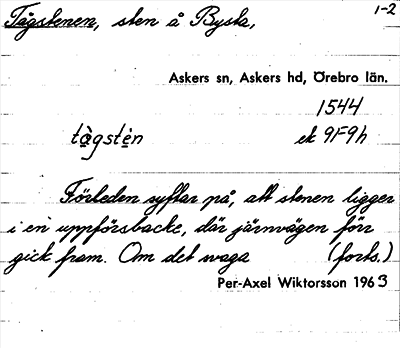 Tågstenen, sten å Bysta, 1-2
Askers sn, Askers hd, Örebro län.
1544
tågstén ek 9F9h
Förleden syftar på, att stenen ligger
i en uppförsbacke, där järnvägen förr
gick fram. Om det svaga (forts.)
Per-Axel Wiktorsson 1963